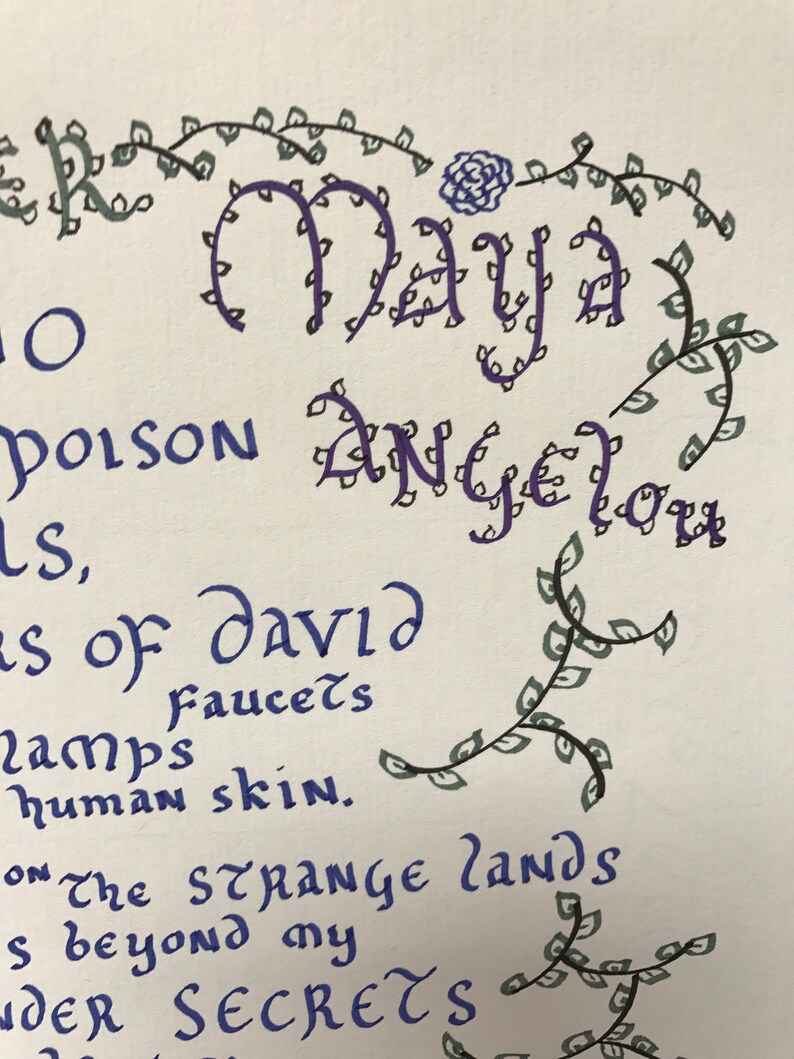 ER
Maya
NO
Angelou
poison
ls,
rs of David
Faucets
lamps
human skin.
on the strange lands
s beyond my
nder Secrets